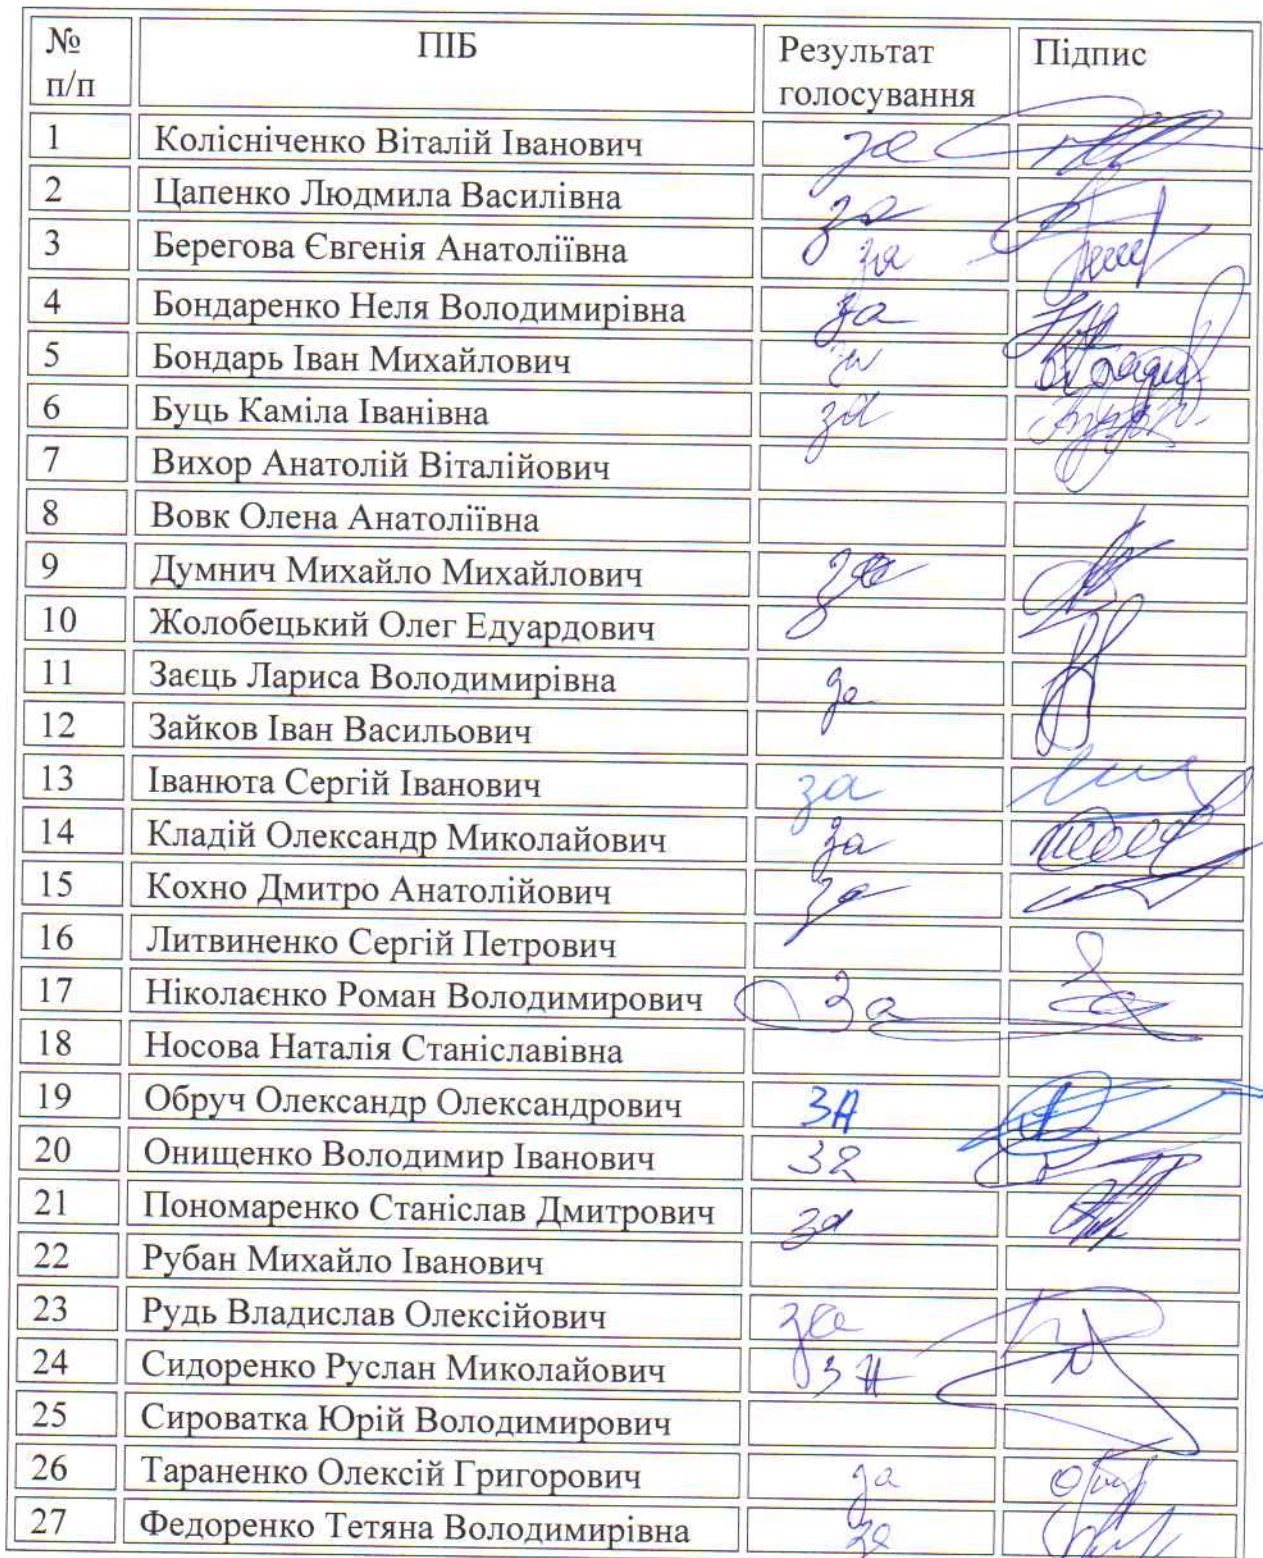 № п/п ПІБ Результат голосування Підпис
1 Колісніченко Віталій Іванович за
2 Цапенко Людмила Василівна за
3 Берегова Євгенія Анатоліївна за
4 Бондаренко Неля Володимирівна за
5 Бондарь Іван Михайлович
6 Буць Каміла Іванівна за
7 Вихор Анатолій Віталійович
8 Вовк Олена Анатоліївна
9 Думнич Михайло Михайлович за
10 Жолобецький Олег Едуардович
11 Заєць Лариса Володимирівна за
12 Зайков Іван Васильович
13 Іванюта Сергій Іванович за
14 Кладій Олександр Миколайович за
15 Кохно Дмитро Анатолійович за
16 Литвиненко Сергій Петрович
17 Ніколаєнко Роман Володимирович За
18 Носова Наталія Станіславівна
19 Обруч Олександр Олександрович ЗА
20 Онищенко Володимир Іванович за
21 Пономаренко Станіслав Дмитрович за
22 Рубан Михайло Іванович
23 Рудь Владислав Олексійович за
24 Сидоренко Руслан Миколайович ЗА
25 Сироватка Юрій Володимирович
26 Тараненко Олексій Григорович за
27 Федоренко Тетяна Володимирівна за